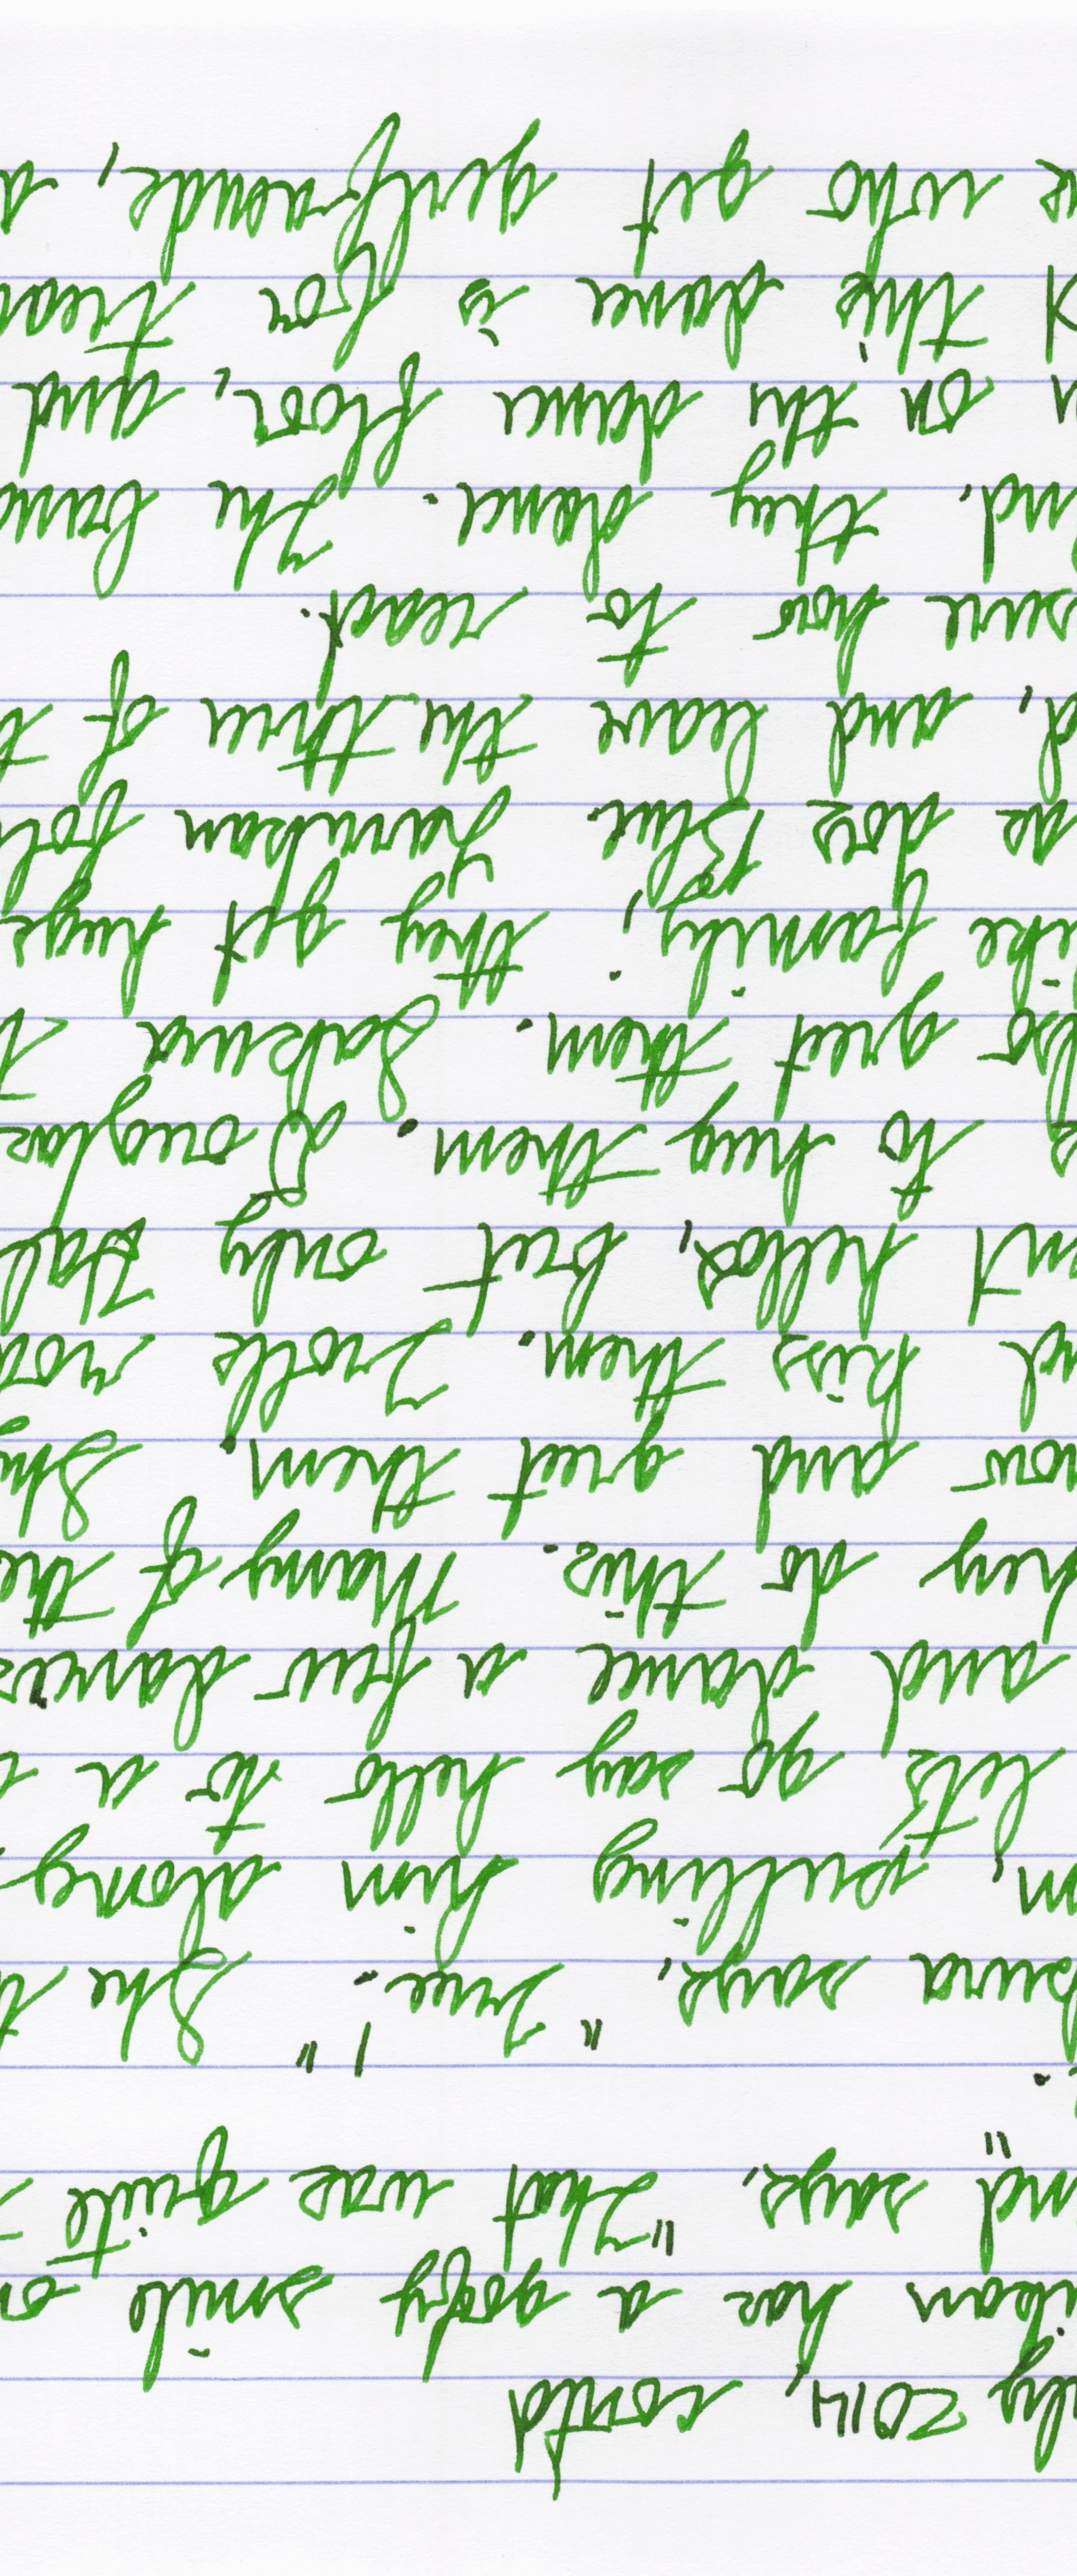 uly 2014, contd
ikan has a goofy smile on
nd says, "That was quite
kura says, "True!" She t
m, pulling him along,
lets go say hello to a
and dance a few dances
hey do this. Many of the
now and greet them. Shy
nd kiss them. Trolls roa
hellos, but only Hal
s to hug them. Douglas
lso greet them. Sakura t
ike family, they get huge
as does Blue. foll
d, and leave the three of t
sure how to react.
nd, they dance. The band
n on the dance floor, and
this dance is for
e who get girlfriends, a